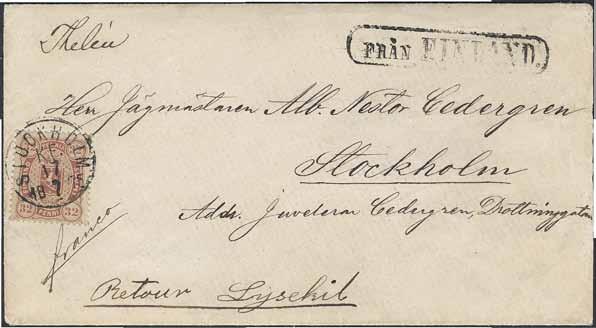 Thelén
FRÅN FINLAND.
Herr Jägmästaren Alb. Nestor Cedergren
Stockholm
STOCKHOLM
17
7
32 PENNI 32
Adr. Juveleraren Cedergren, Drottninggatan
franco
Retour Lysekil